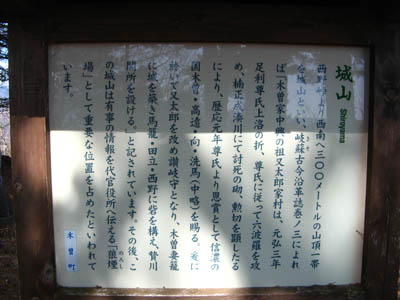 城山
Shiroyama
西野峠より西南へ三〇〇メートルの山頂一帯
を城山といい、岐蘇古今沿革誌巻ノ三によれ
ば「木曽家中興の祖又太郎家村は、元弘三年
足利尊氏上洛の折、尊氏に従って六波羅を攻
め、楠正成湊川にて討死の砌、勲切を顕したる
により、歴応元年尊氏より恩賞として信濃の
国木曽・高遠・向・洗馬(中略)を賜る。爰に
於いて又太郎を改め讃岐守となり、木曽妻籠
に城を築き馬籠・田立・西野に砦を構え、贄川
関所を設ける。」と記されています。その後、こ
の城山は有事の情報を代官役所へ伝える「狼煙
のろし
場」として重要な位置を占めたといわれて
います。
木曽町